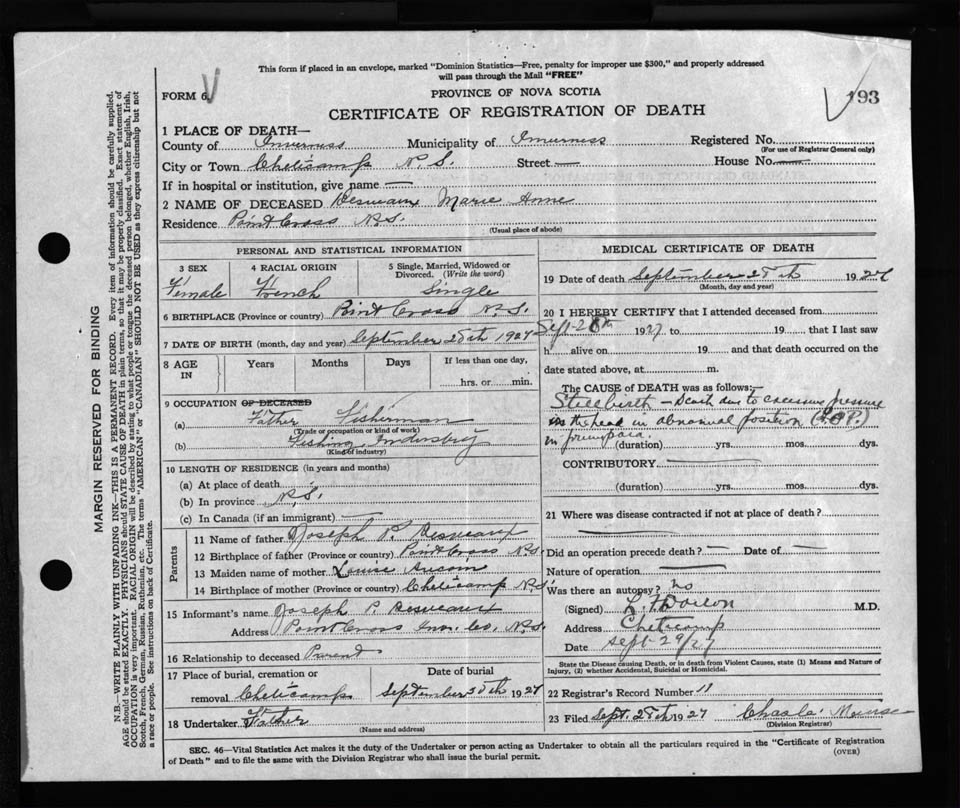 This form if placed in an envelope, marked "Dominion Statistics—Free, penalty for improper use $300," and properly addressed
will pass through the Mail "FREE"
FORM 6.
PROVINCE OF NOVA SCOTIA
193
CERTIFICATE OF REGISTRATION OF DEATH
1 PLACE OF DEATH—
County of Inverness Municipality of Inverness Registered No.
(For use of Registrar General only)
City or Town Cheticamp N.S. Street — House No. —
If in hospital or institution, give name —
2 NAME OF DECEASED Desveaux Marie Anne
Residence Point Cross N.S.
(Usual place of abode)
PERSONAL AND STATISTICAL INFORMATION
3 SEX 4 RACIAL ORIGIN 5 Single, Married, Widowed or Divorced. (Write the word)
Female French Single
6 BIRTHPLACE (Province or country) Point Cross N.S.
7 DATE OF BIRTH (month, day and year) September 28th 1927
8 AGE IN Years Months Days If less than one day,
hrs. or min.
9 OCCUPATION OF DECEASED
(a) Father Fisherman
(Trade or occupation or kind of work)
(b) Fishing Industry
(Kind of industry)
10 LENGTH OF RESIDENCE (in years and months)
(a) At place of death
(b) In province N.S.
(c) In Canada (if an immigrant) —
Parents
11 Name of father Joseph P. Desveaux
12 Birthplace of father (Province or country) Point Cross N.S.
13 Maiden name of mother Louise
14 Birthplace of mother (Province or country) Cheticamp N.S.
15 Informant's name Joseph P. Desveaux
Address Point Cross Inv. Co. N.S.
16 Relationship to deceased Parent
17 Place of burial, cremation or Date of burial
removal Cheticamp September 30th 1927
18 Undertaker Father
(Name and address)
MEDICAL CERTIFICATE OF DEATH
19 Date of death September 28th 1927
(Month, day and year)
20 I HEREBY CERTIFY that I attended deceased from
Sept-28th 1927 to 19 that I last saw
h alive on 19 and that death occurred on the
date stated above, at m.
The CAUSE of DEATH was as follows:—
Stillbirth — Death due to excessive pressure
on the head in abnormal position (R.O.P.)
in primipara.
(duration) yrs. mos. dys.
CONTRIBUTORY —
(duration) yrs. mos. dys.
21 Where was disease contracted if not at place of death?
Did an operation precede death? — Date of —
Nature of operation —
Was there an autopsy? no
(Signed) M.D.
Address Cheticamp
Date Sept-29/27
State the Disease causing Death, or in death from Violent Causes, state (1) Means and Nature of
Injury, (2) whether Accidental, Suicidal or Homicidal.
22 Registrar's Record Number 11
23 Filed Sept. 28th 1927
(Division Registrar)
SEC. 46—Vital Statistics Act makes it the duty of the Undertaker or person acting as Undertaker to obtain all the particulars required in the "Certificate of Registration
of Death" and to file the same with the Division Registrar who shall issue the burial permit.
(OVER)
MARGIN RESERVED FOR BINDING
N.B.—WRITE PLAINLY WITH UNFADING INK—THIS IS A PERMANENT RECORD. Every item of information should be carefully supplied.
AGE should be stated EXACTLY. PHYSICIANS should STATE CAUSE OF DEATH in plain terms, so that it may be properly classified. Exact statement of
OCCUPATION is very important. RACIAL ORIGIN will be described by stating to what people or tongue the deceased person belonged, whether English, Irish,
Scotch, French, German, Russian, Ruthenian, etc. The terms "AMERICAN" or "CANADIAN" SHOULD NOT BE USED as they express citizenship but not
a race or people. See instructions on back of Certificate.